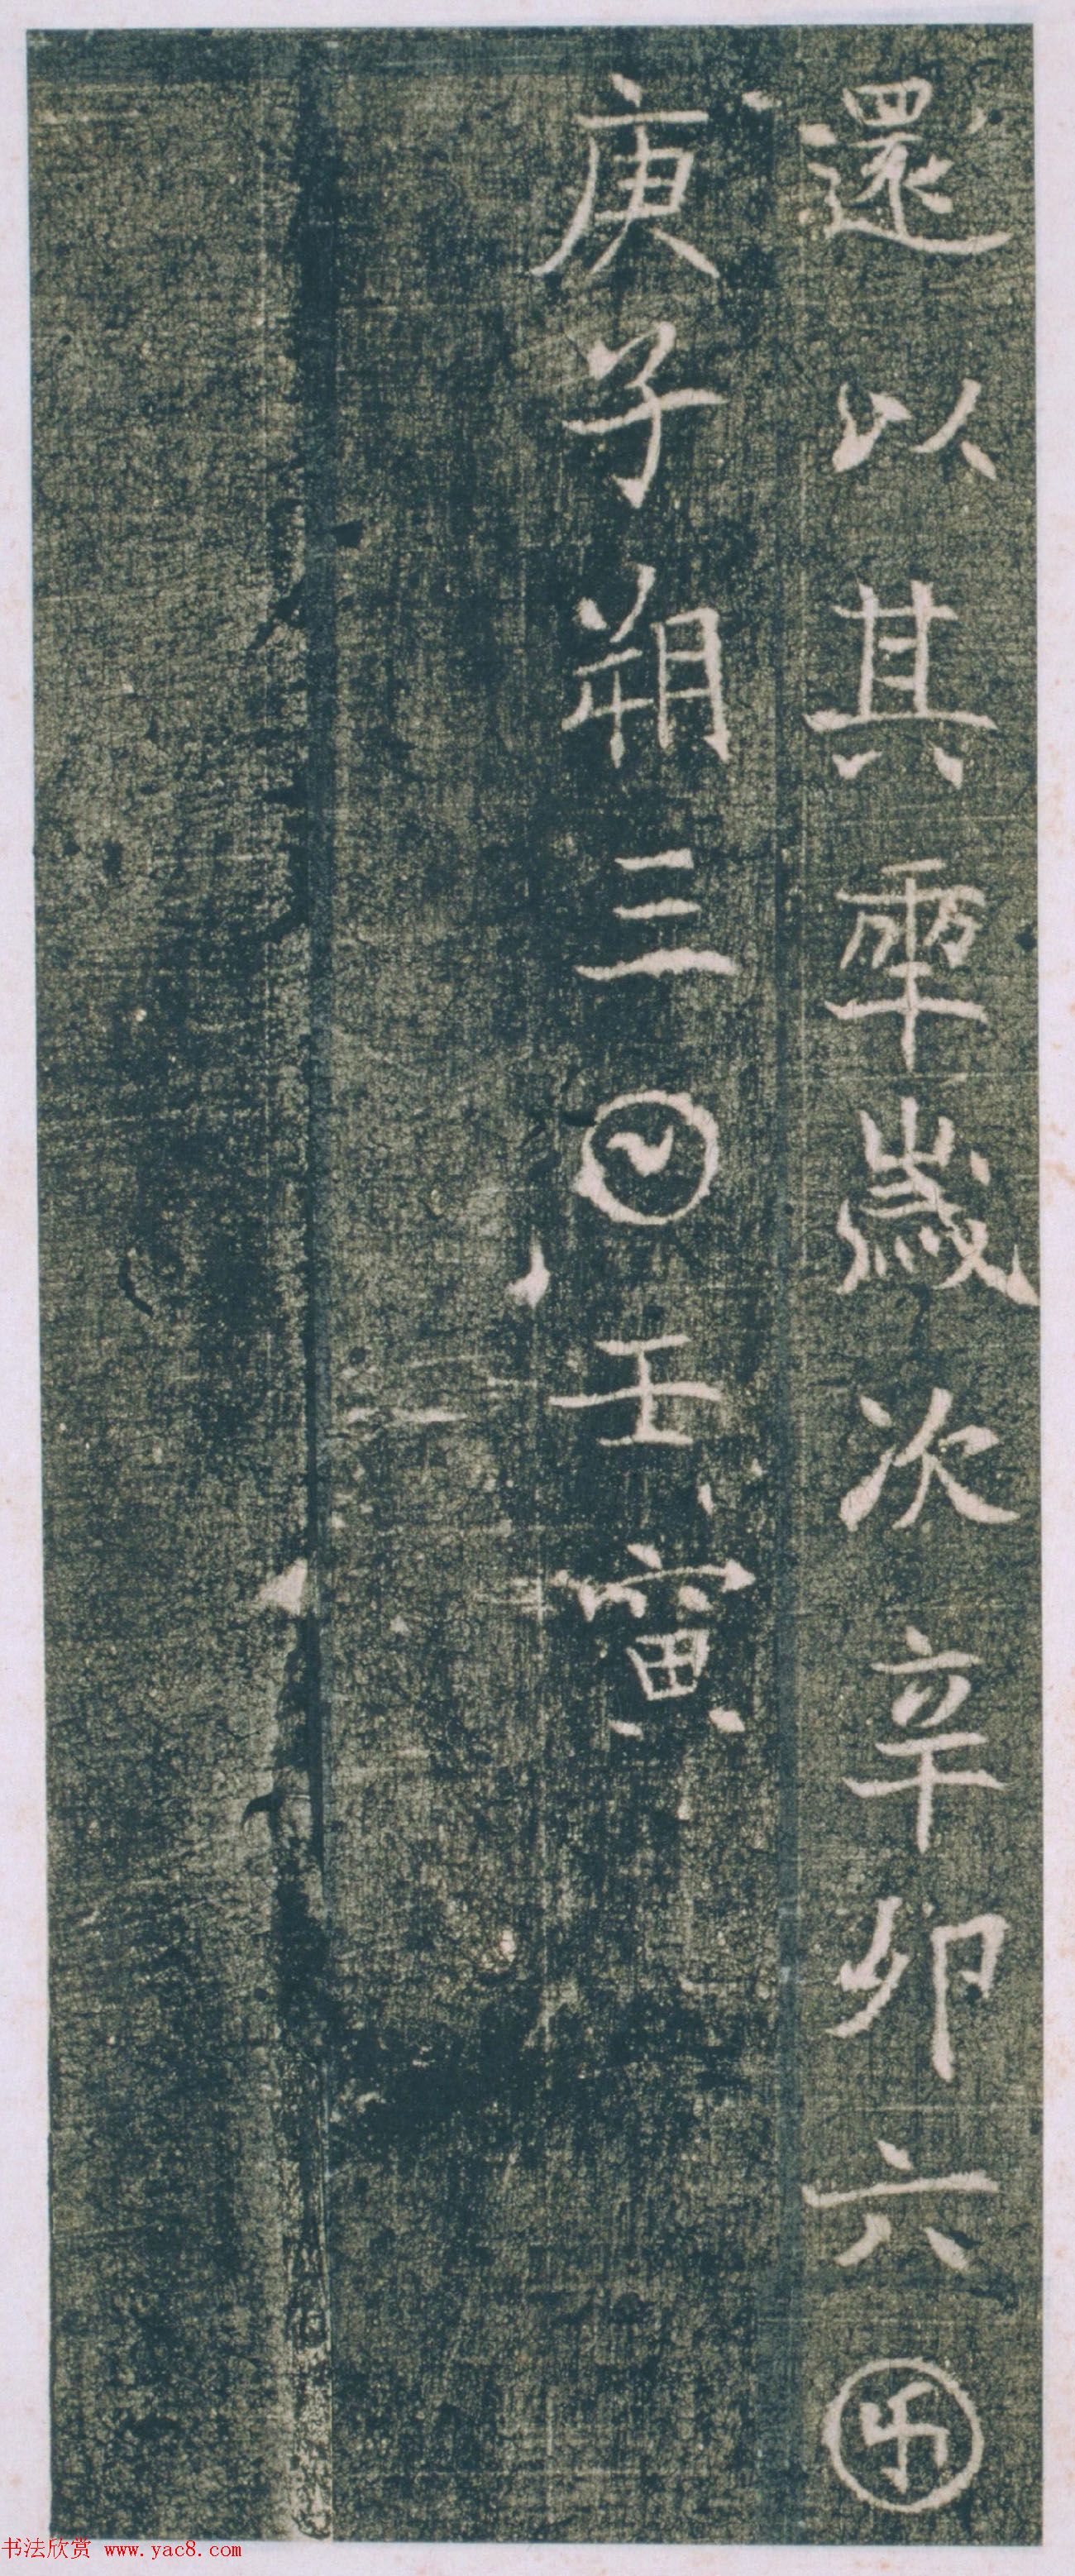 還以其𠡦歲次辛卯六𠥱
庚子朔三𡆠壬寅
书法欣赏 www.yac8.com